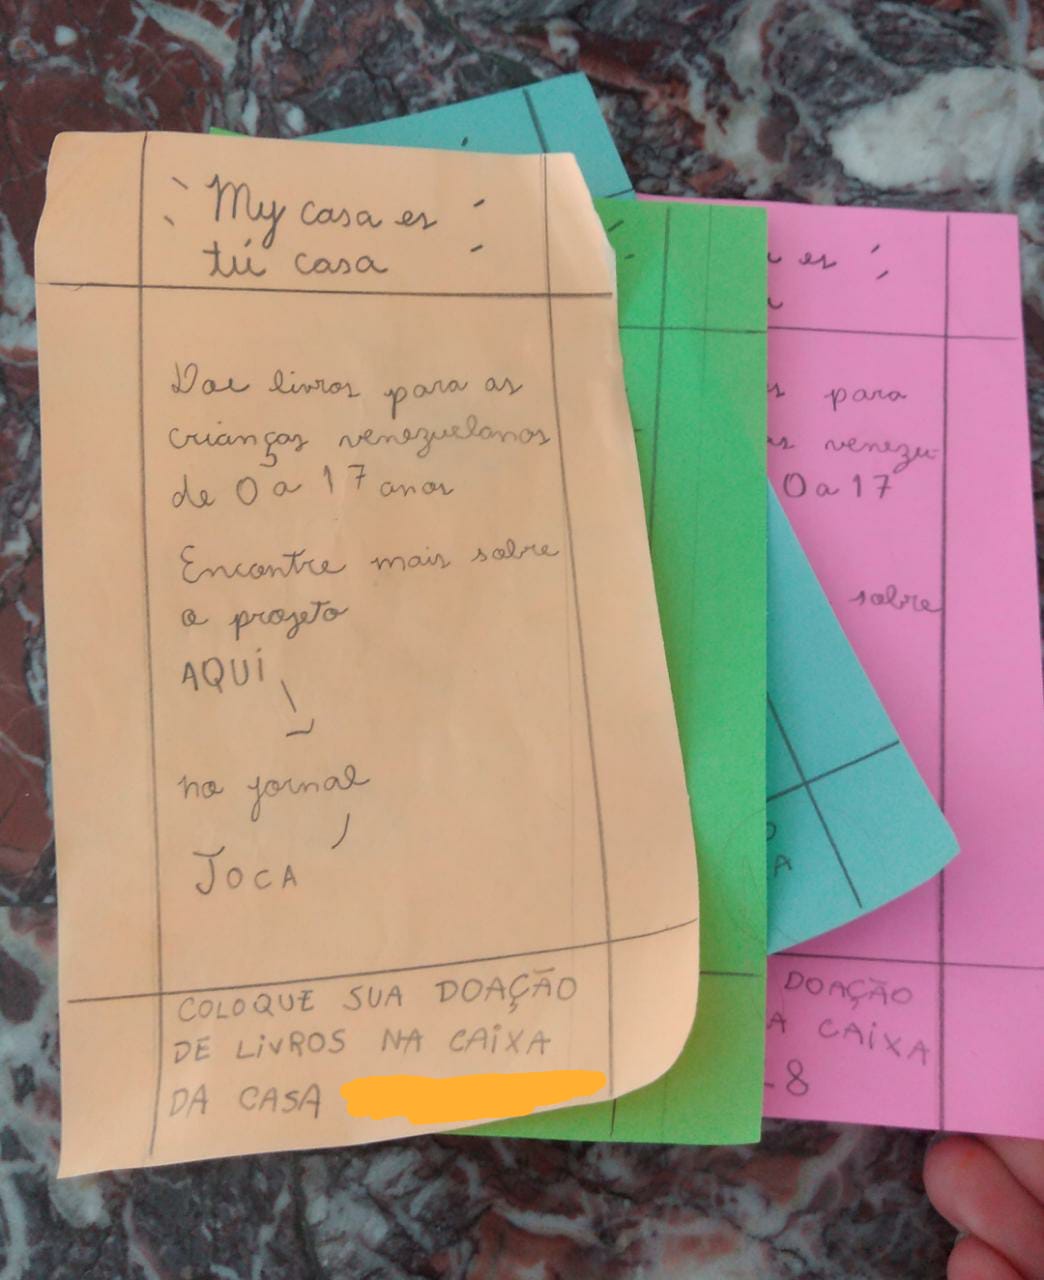 My casa es
tú casa
Doe livros para as
crianças venezuelanos
de 0 a 17 anos
Encontre mais sobre
o projeto
AQUI
no jornal
JOCA
COLOQUE SUA DOAÇÃO
DE LIVROS NA CAIXA
DA CASA
es
para
venezu-
0 a 17
sobre
DOAÇÃO
A CAIXA
-8